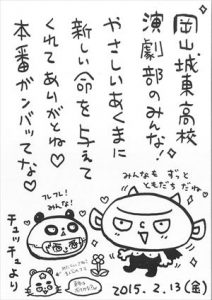 岡山城東高校
演劇部のみんな！
やさしいあくまに
新しい命を与えて
くれてありがとね♡
本番ガンバッてな♡
チュッチュより
フレフレ！
みんな！
みんなもずっと
ともだちだね
2015. 2. 13 (金)